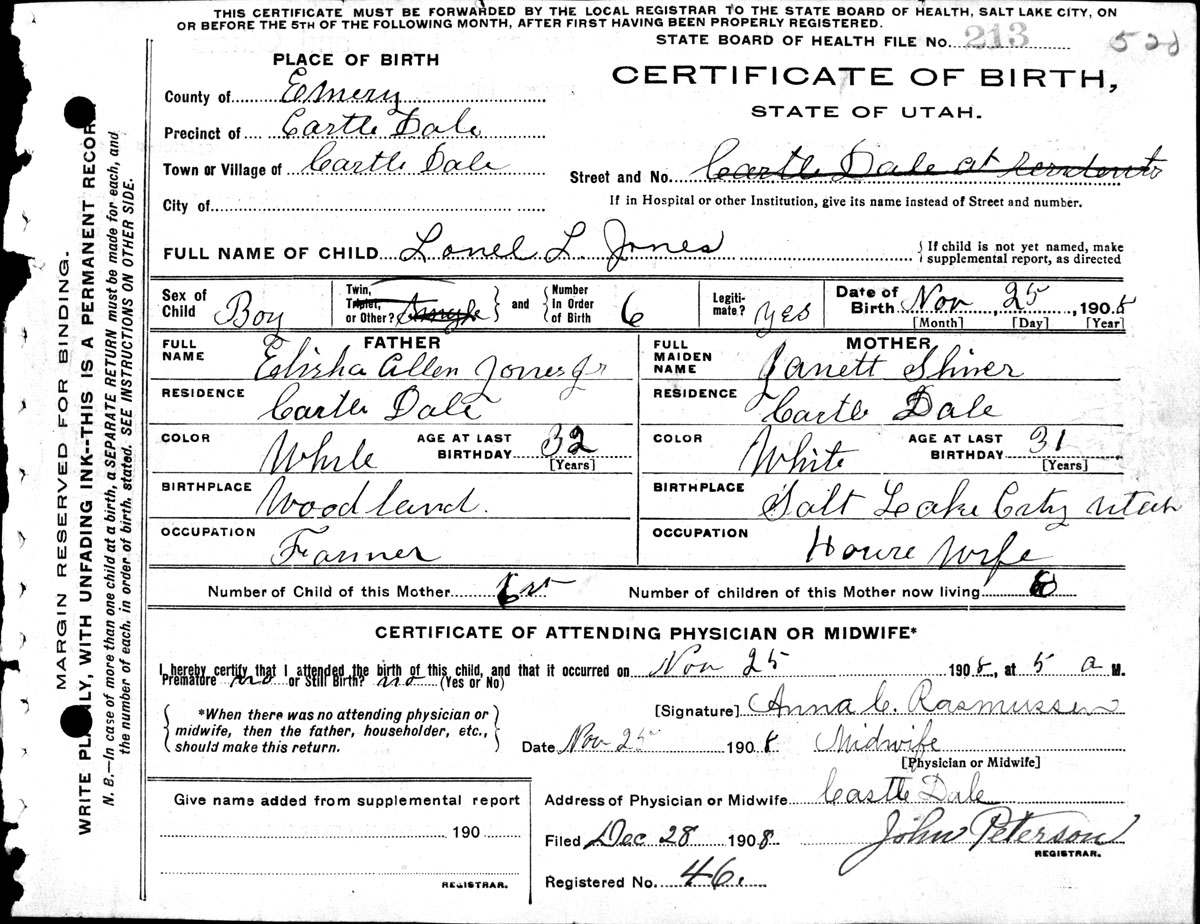 THIS CERTIFICATE MUST BE FORWARDED BY THE LOCAL REGISTRAR TO THE STATE BOARD OF HEALTH, SALT LAKE CITY, ON
OR BEFORE THE 5TH OF THE FOLLOWING MONTH, AFTER FIRST HAVING BEEN PROPERLY REGISTERED.
STATE BOARD OF HEALTH FILE No. 213
PLACE OF BIRTH
CERTIFICATE OF BIRTH,
STATE OF UTAH.
County of Emery
Precinct of Castle Dale
Town or Village of Castle Dale
Street and No. Castle Dale at
City of
If in Hospital or other Institution, give its name instead of Street and number.
FULL NAME OF CHILD Lonel L. Jones
{ If child is not yet named, make
supplemental report, as directed
Sex of Child Boy
Twin, Triplet, or Other? } and { Number In Order of Birth 6
Legitimate? yes
Date of Birth Nov 25, 1908
[Month] [Day] [Year]
FATHER
FULL NAME Elisha Allen Jones Jr
RESIDENCE Castle Dale
COLOR White AGE AT LAST BIRTHDAY 32 [Years]
BIRTHPLACE Woodland.
OCCUPATION Farmer
MOTHER
FULL MAIDEN NAME Janett Shiner
RESIDENCE Castle Dale
COLOR White AGE AT LAST BIRTHDAY 31 [Years]
BIRTHPLACE Salt Lake City Utah
OCCUPATION House Wife
Number of Child of this Mother
Number of children of this Mother now living 6
CERTIFICATE OF ATTENDING PHYSICIAN OR MIDWIFE*
I hereby certify that I attended the birth of this child, and that it occurred on Nov 25 1908, at 5 a M.
Premature no or Still Birth? no (Yes or No)
{ *When there was no attending physician or
midwife, then the father, householder, etc.,
should make this return. }
[Signature] Anna C. Rasmussen
Date Nov 25 1908 Midwife
[Physician or Midwife]
Give name added from supplemental report
190
REGISTRAR.
Address of Physician or Midwife Castle Dale
Filed Dec 28 1908. John Peterson
REGISTRAR.
Registered No. 46.
MARGIN RESERVED FOR BINDING.
WRITE PLAINLY, WITH UNFADING INK--THIS IS A PERMANENT RECORD.
N. B.—In case of more than one child at a birth, a SEPARATE RETURN must be made for each, and
the number of each, in order of birth, stated. SEE INSTRUCTIONS ON OTHER SIDE.